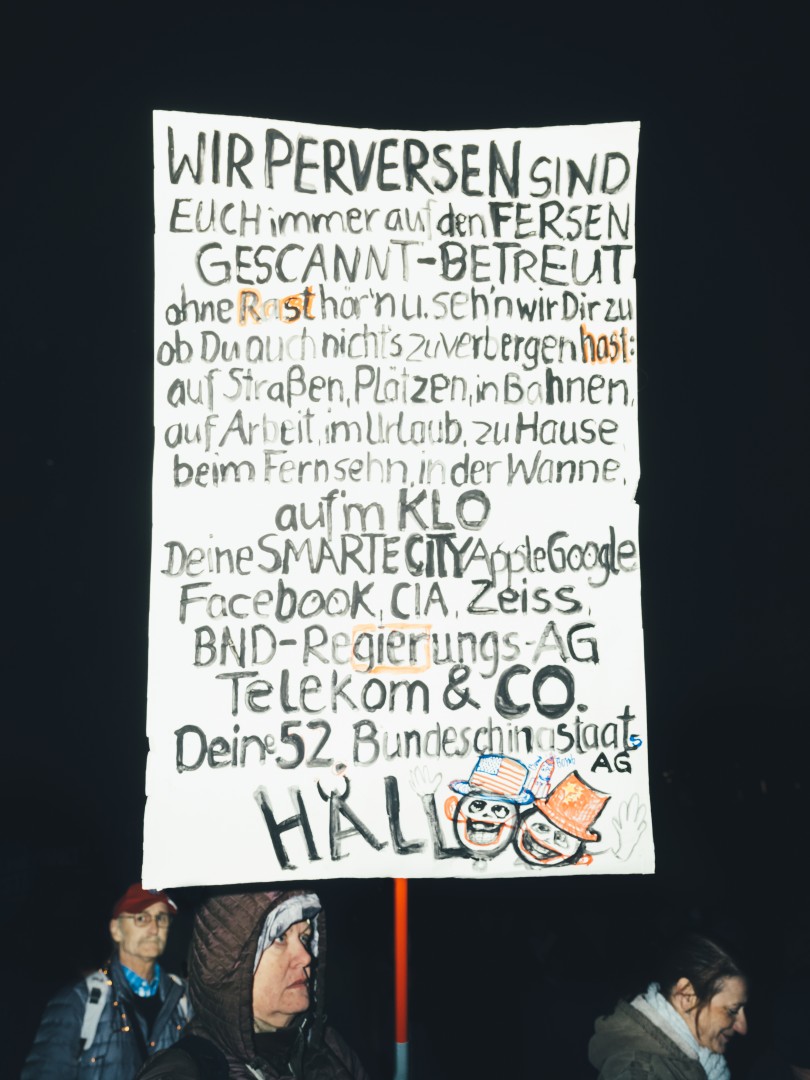 WIR PERVERSEN SIND
EUCH immer auf den FERSEN
GESCANNT-BETREUT
ohne Rast hör'n u. seh'n wir Dir zu
ob Du auch nichts zu verbergen hast:
auf Straßen, Plätzen, in Bahnen,
auf Arbeit, im Urlaub, zu Hause,
beim Fernsehn, in der Wanne,
auf'm KLO
Deine SMARTE CITY Apple Google
Facebook, CIA, Zeiss,
BND-Regierungs-AG
Telekom & CO.
Deine 52. Bundeschinastaats
AG
HALL